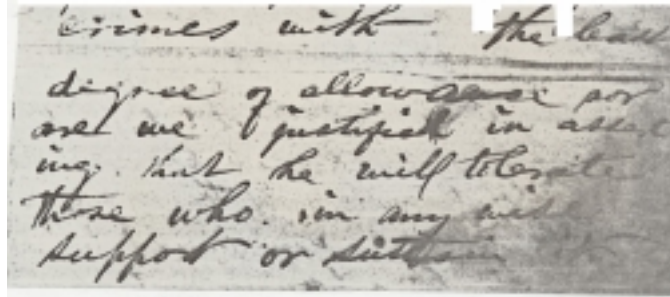 crimes with the leas
degree of allowance nor
are we justified in asser
ing that he will tolerate
those who in any wise
support or sustain